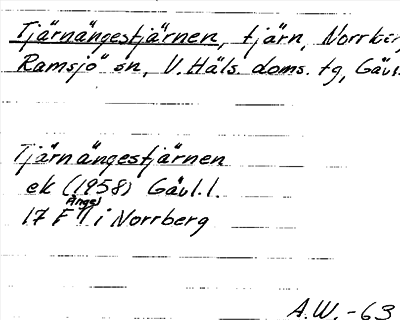 Tjärnängestjärnen, tjärn, Norrber
Ramsjö sn, V. Häls. doms. tg, Gävl.
Tjärnängestjärnen
ek (1958) Gävl. l.
17 F
i Norrberg
A.W. -63